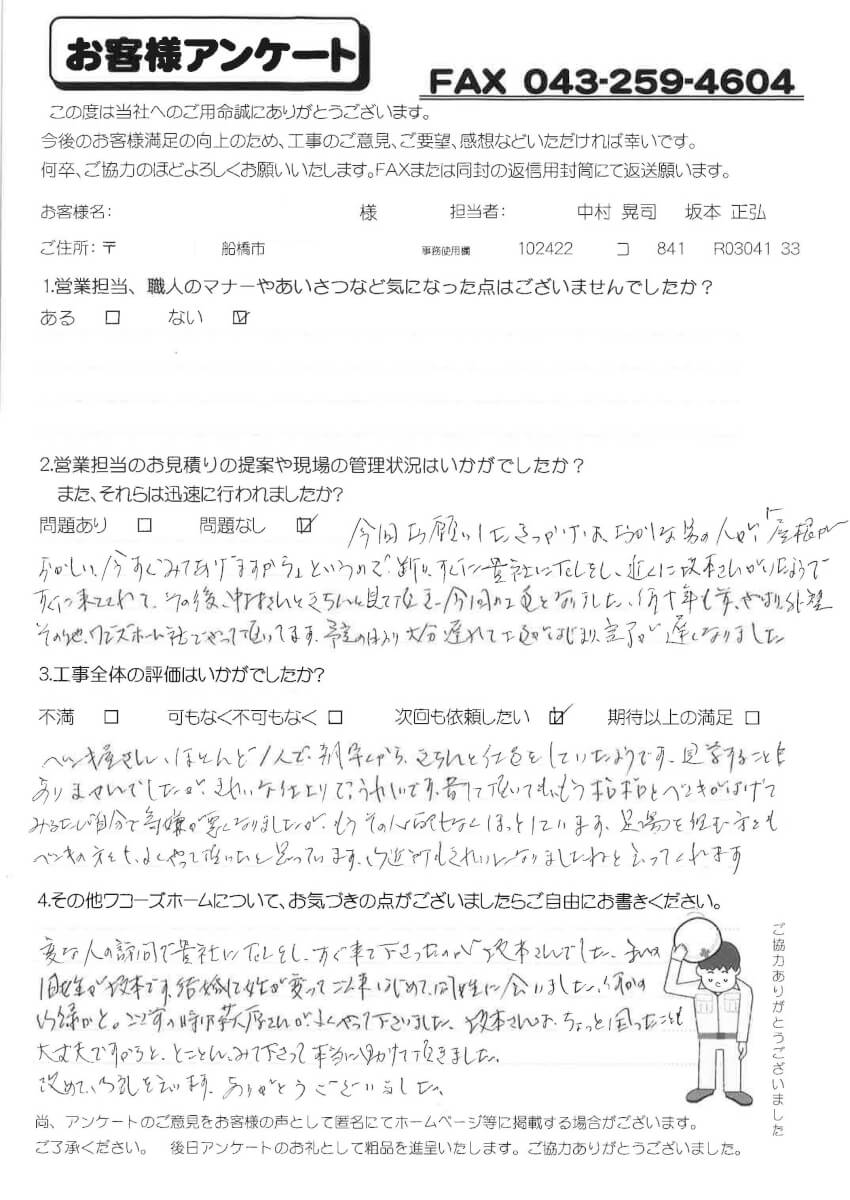 お客様アンケート
FAX 043-259-4604
この度は当社へのご用命誠にありがとうございます。
今後のお客様満足の向上のため、工事のご意見、ご要望、感想などいただければ幸いです。
何卒、ご協力のほどよろしくお願いいたします。FAXまたは同封の返信用封筒にて返送願います。
お客様名: 様 担当者: 中村 晃司 坂本 正弘
ご住所:〒 船橋市 事務使用欄 102422 コ 841 R03041 33
1.営業担当、職人のマナーやあいさつなど気になった点はございませんでしたか?
ある □ ない ☑
2.営業担当のお見積りの提案や現場の管理状況はいかがでしたか?
また、それらは迅速に行われましたか?
問題あり □ 問題なし ☑ 今回お願いしたきっかけは、おかしな男の人が「屋根が
おかしい、今すぐみてあげますから」というので、断り、すぐに貴社にTELをし、近くに坂本さんがいたようで
すぐに来てくれて、その後、中村さんときちんと見て頂き今回の工事となりました、何十年も前、やはり外壁
その他、ワコーズホーム社でやって頂いてます、予定の日より大分遅れて工事がはじまり、完了が遅くなりました
3.工事全体の評価はいかがでしたか?
不満 □ 可もなく不可もなく □ 次回も依頼したい ☑ 期待以上の満足 □
ペンキ屋さん、ほとんど1人で、朝早くから、きちんと仕事をしていたようです、見学することは
ありませんでしたが、きれいな仕上りでうれしいです、昔
みるたび自分で気嫌が悪くなりましたが、もうその心配もなくほっとしています、足場を組む方も
ペンキの方も、よくやって頂いたと思っています、ご近所もきれいになりましたねと言ってくれます
4.その他ワコーズホームについて、お気づきの点がございましたらご自由にお書きください。
変な人の訪問で貴社にTELをし、すぐ来て下さったのが坂本さんでした、私の
旧姓が坂本です、結婚して姓が変って以来はじめて、同姓に会いました、何かの
ご縁かと。 の時は萩原さんがよくやって下さいました、坂本さんは、ちょっと困ったことも
大丈夫ですからと、とことん、みて下さって本当に助けて頂きました、
改めて、お礼を言います、ありがとうございました、
ご協力ありがとうございました
尚、アンケートのご意見をお客様の声として匿名にてホームページ等に掲載する場合がございます。
ご了承ください。 後日アンケートのお礼として粗品を進呈いたします。ご協力ありがとうございました。